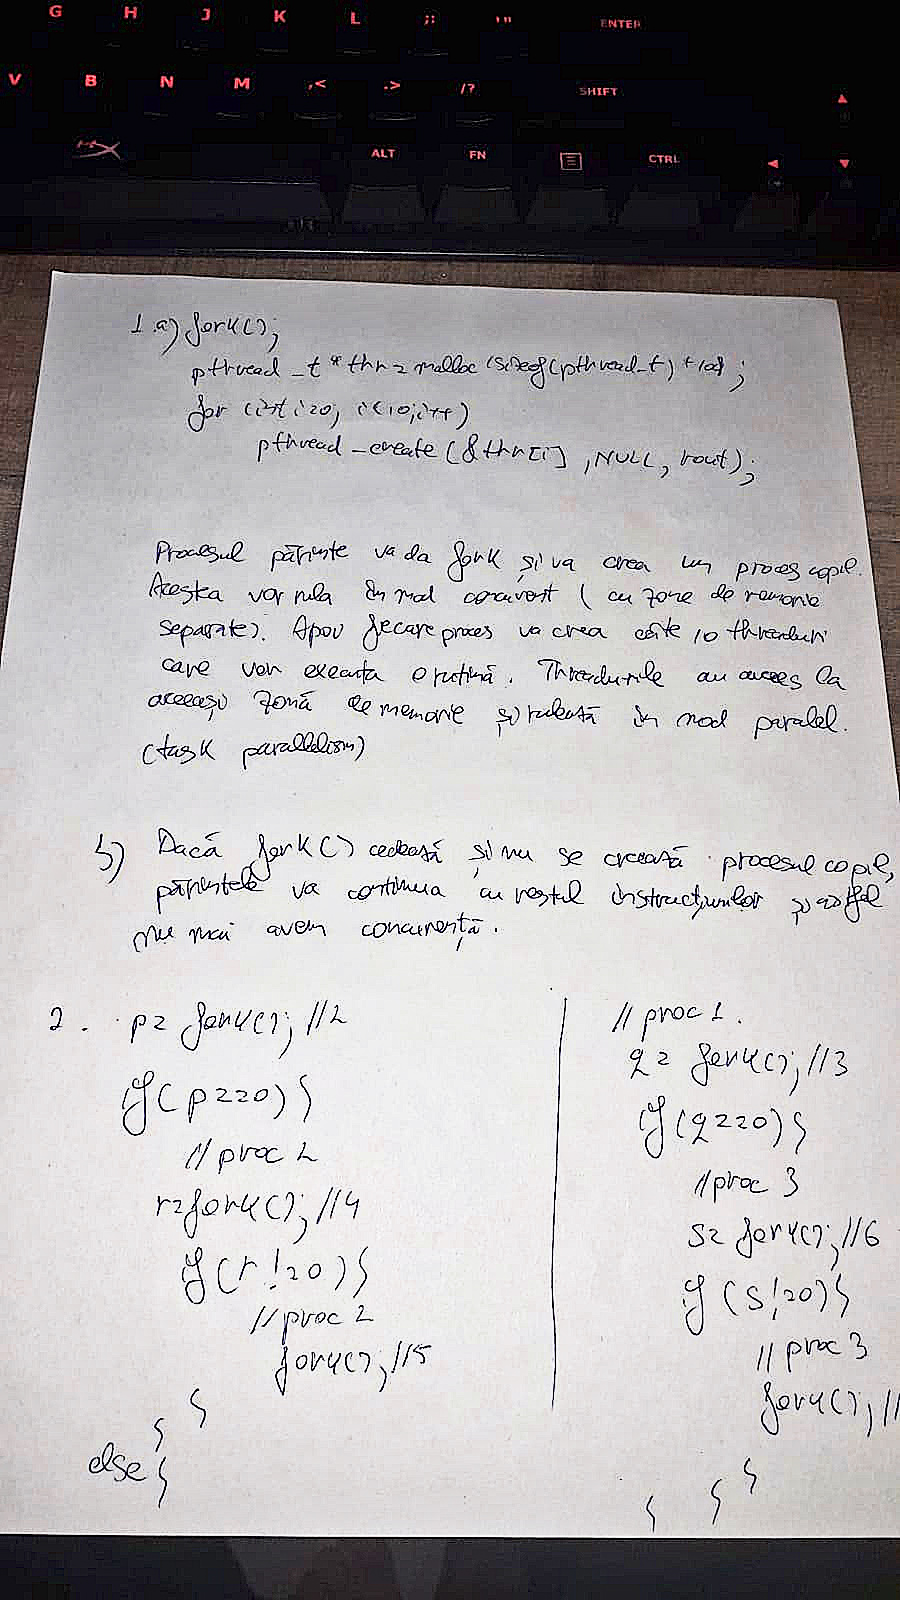 G H J K L ;: '" ENTER
V B N M ,< .> /? SHIFT
ALT FN CTRL
1.a) fork();
pthread_t *thr = malloc(sizeof(pthread_t) *10);
for (int i=0; i<10; i++)
pthread_create(&thr[i], NULL, rout);
Procesul părinte va da fork și va crea un proces copil.
Aceștea vor rula în mod concurent (cu zone de memorie
separate). Apoi fiecare proces va crea câte 10 threaduri
care vor executa o rutină. Threadurile au acces la
aceeași zonă de memorie și rulează în mod paralel.
(task parallelism)
b) Dacă fork() eșuează și nu se creează procesul copil,
părintele va continua cu restul instrucțiunilor și astfel
nu mai avem concurență.
2. p= fork(); //2
if(p==0){
//proc 2
r=fork(); //4
if(r!=0){
//proc 2
fork(); //5
}
}
else{
//proc 1.
q= fork(); //3
if(q==0){
//proc 3
s= fork(); //6
if(s!=0){
//proc 3
fork(); //
} } }